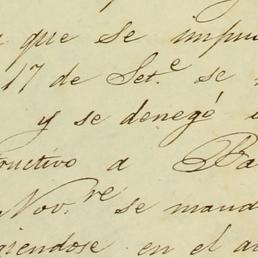 que se impu
17 de Set.e se
y se denegó
ructivo a Ba
Nov.re se mand
giendose en el a